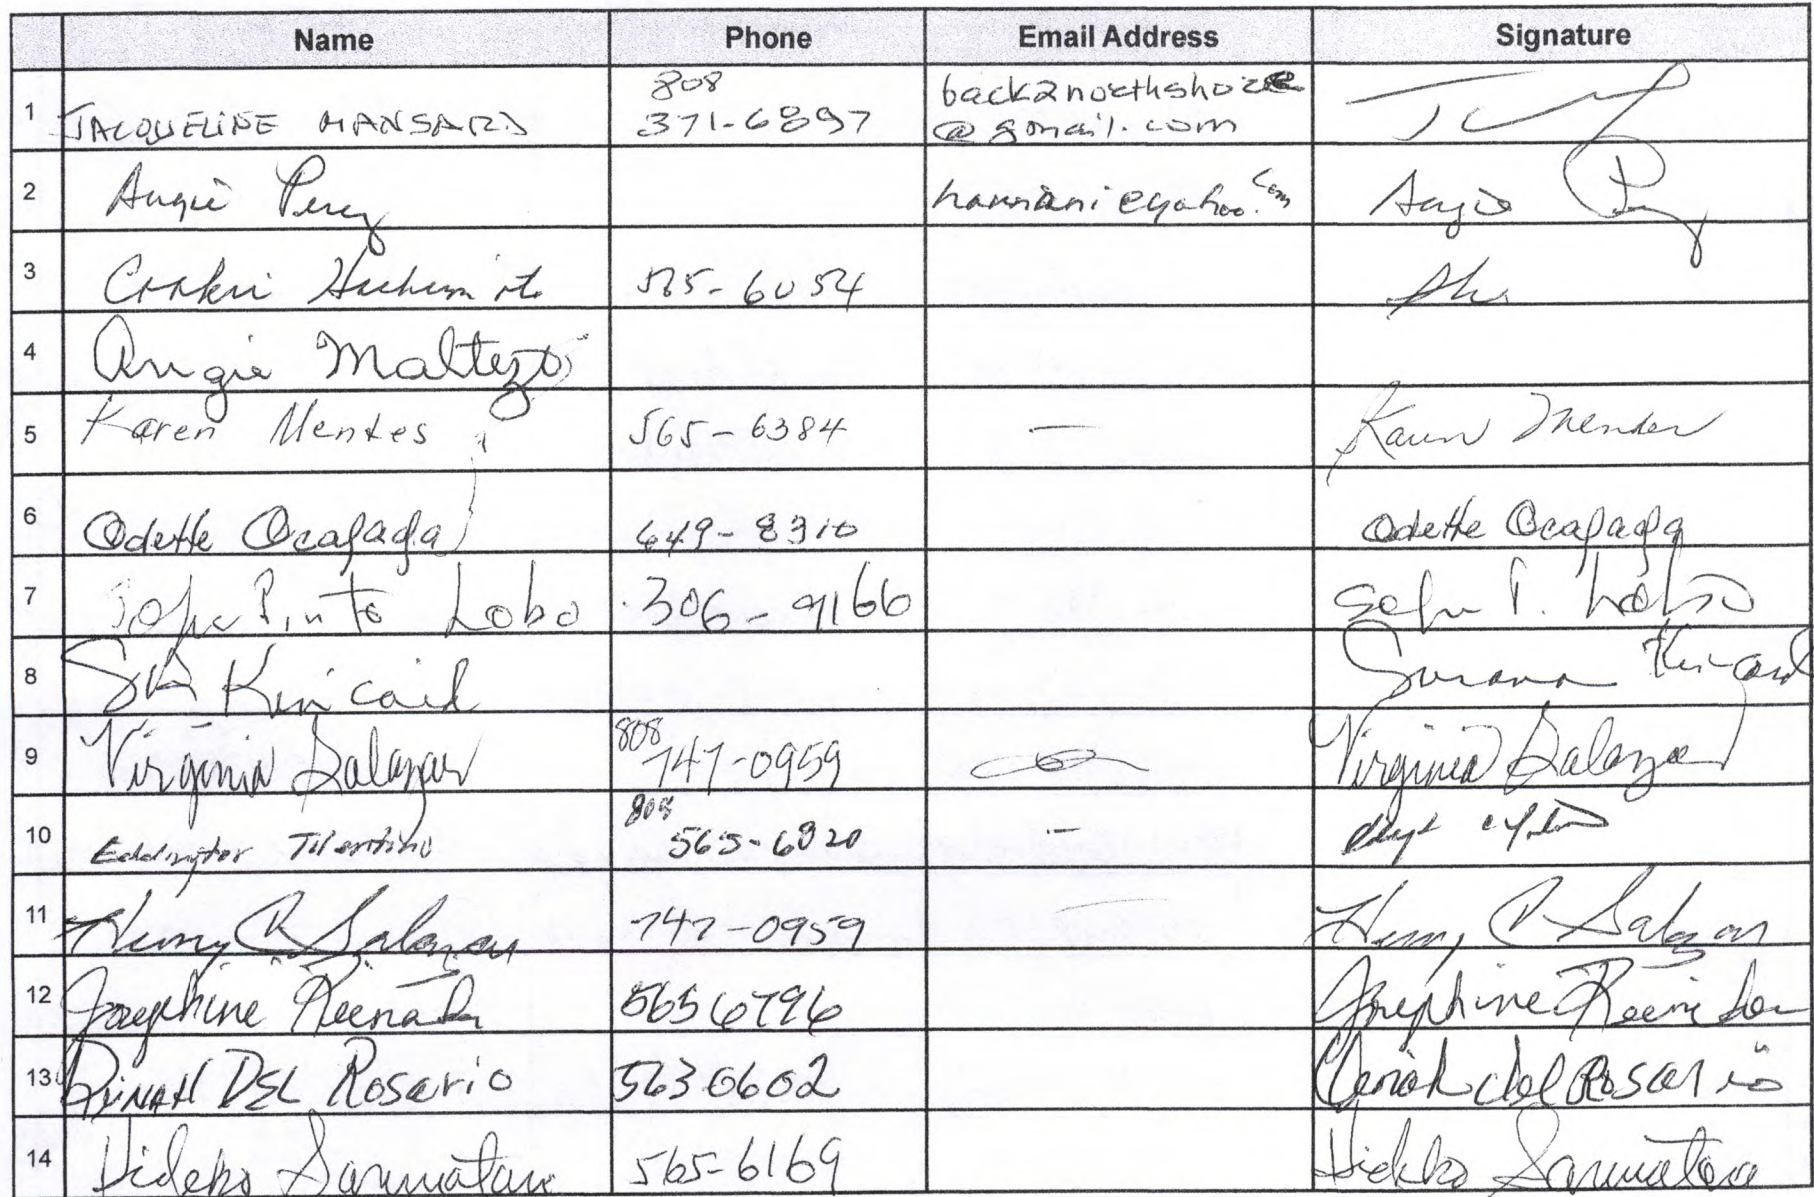 Name Phone Email Address Signature
1 JACQUELINE MANSARD 808 371-6897 back2northshore @gmail.com
2 Angie Perez @yahoo.com Angie
3 Hashimoto 565-6054
4 Angie Maltezo
5 Karen Mendes 565-6384 — Karen Mendes
6 Odette Ocapada 649-8310 Odette Ocapada
7 Pinto Lobo 306-9166 P. Lobo
8 Kincaid Susana Kincaid
9 Virginia Salazar 808 747-0959 Virginia Salazar
10 Eddington Tolentino 808 565-6820 —
11 Henry C Salazar 747-0959 — Henry C Salazar
12 Josephine 5656796 Josephine
13 DINAH DEL Rosario 5630602 Dinah del Rosario
14 Hideko 565-6169 Hideko